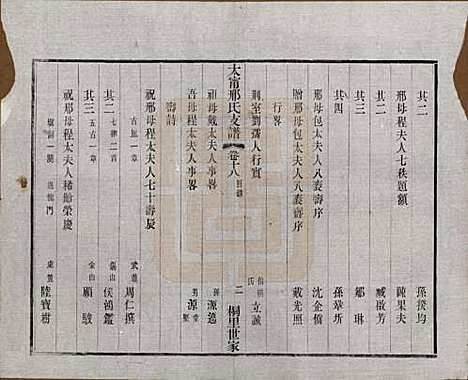 其二 孫揆均
邢母程太夫人七秩題額 陳果夫
其二 臧啟芳
其三 鄒琳
其四 孫
邢母包太夫人八袠壽序 沈企僑
贈邢母包太夫人八袠壽序 戴光照
行畧
荆室劉孺人行實 立誠
太甯邢氏支譜 卷十八 目錄 二 桐里世家
祖母戴太夫人事畧 孫 源
吾母程太夫人事畧 男 源
壽詩
祝邢母程太夫人七十壽辰
五古一章 武進 周仁撰
其二
七律二首 錫山 侯鴻鑑
其三
五古一章 金山 顧駿
祝邢母程太夫人稀齡榮慶
陸寶樹